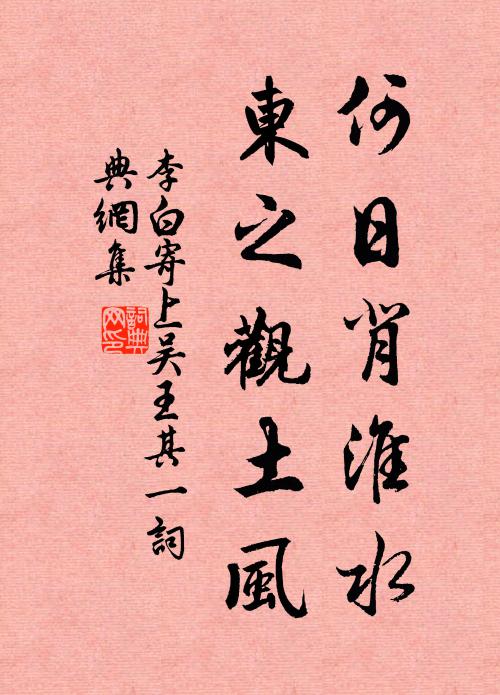 何日背淮水
東之觀土風
李白寄上吴王其一詞
典網集
詞典
网印